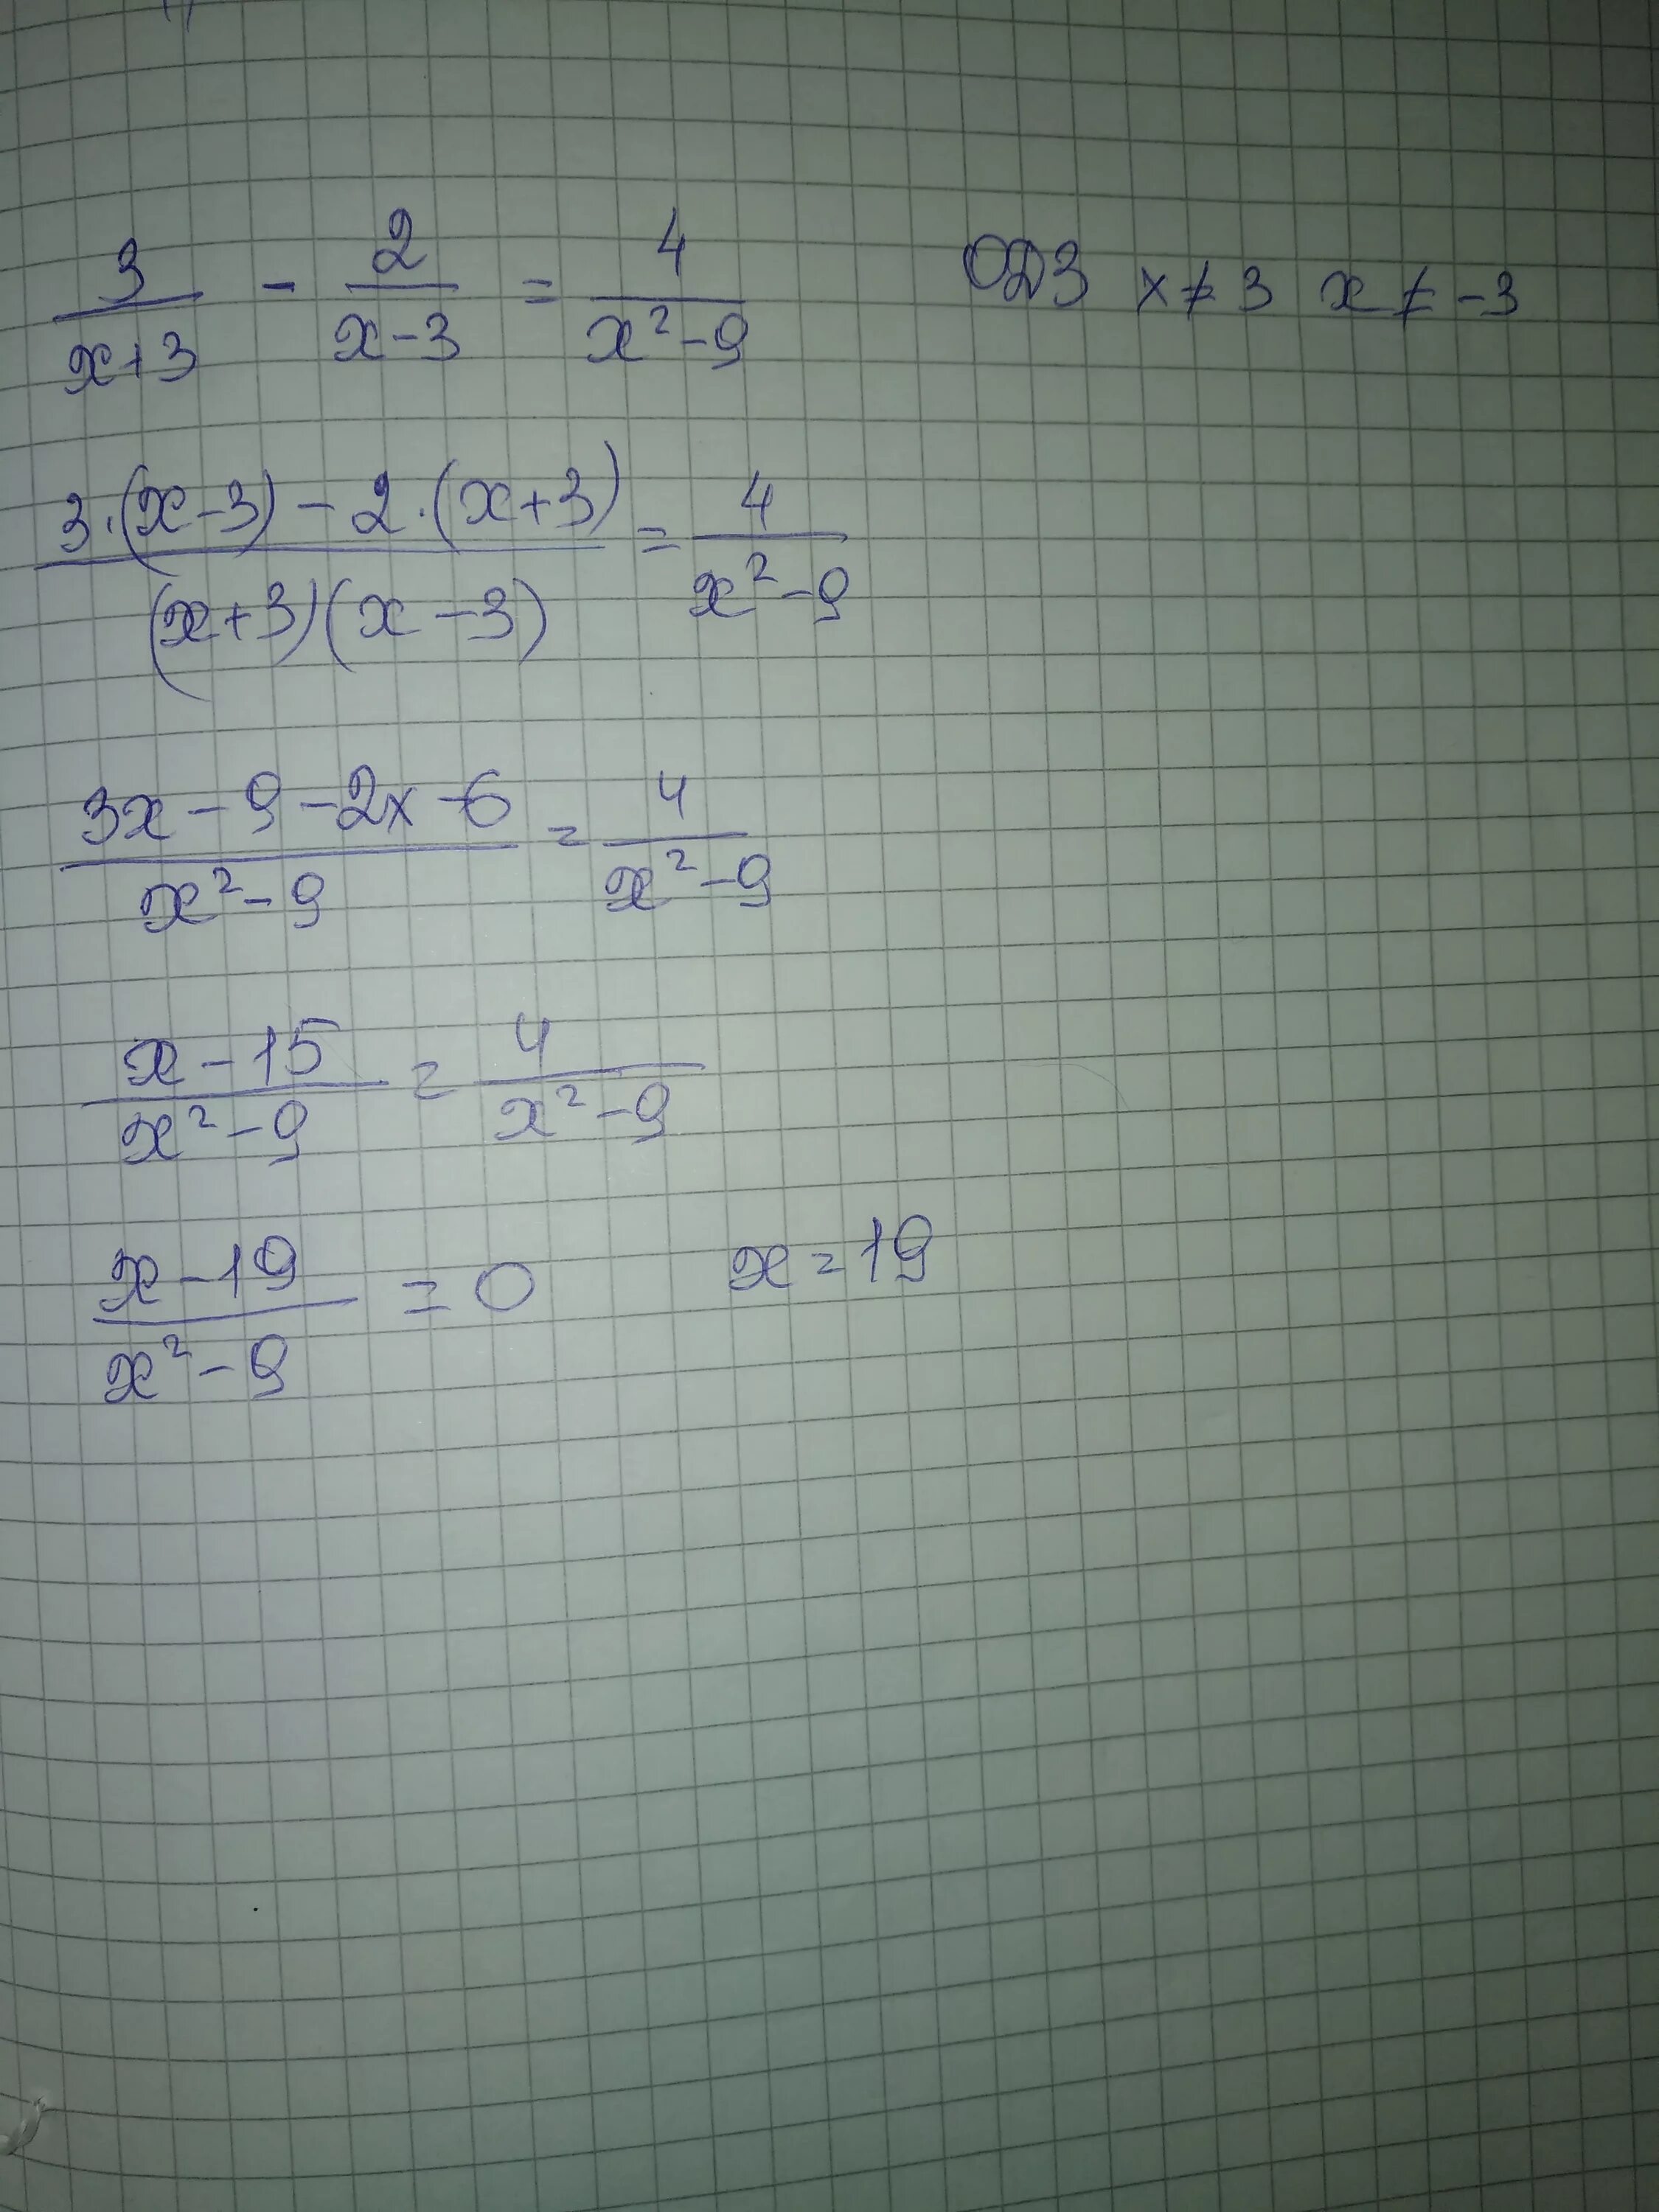 3/(x+3) - 2/(x-3) = 4/(x²-9) ОДЗ x≠3 x≠-3
(3·(x-3)-2·(x+3))/((x+3)(x-3)) = 4/(x²-9)
(3x-9-2x-6)/(x²-9) = 4/(x²-9)
(x-15)/(x²-9) = 4/(x²-9)
(x-19)/(x²-9) = 0 x=19